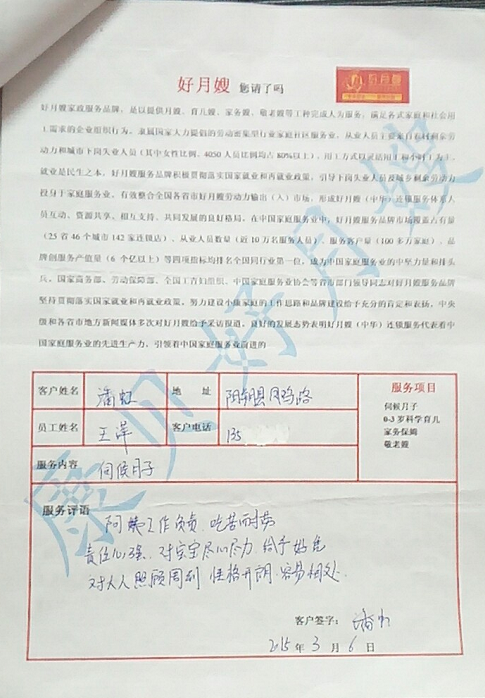 好月嫂 您请了吗
好月嫂
好月嫂家政服务品牌，是以提供月嫂、育儿嫂、家务嫂、敬老嫂等工种完成人为服务，满足各式家庭和社会用
工需求的企业组织行为。隶属国家人力提倡的劳动密集型行业家庭社区服务业。从业人员主要来自农村剩余劳
动力和城市下岗失业人员（其中女性比例、4050人员比例均占80%以上），用工方式以灵活用工和小时工为主，
就业是民生之本。好月嫂服务品牌积极贯彻落实国家就业和再就业政策，引导下岗失业人员及城乡剩余劳动力
投身于家庭服务业，有效整合全国各省市好月嫂劳动力输出（入）市场，形成好月嫂（中华）连锁服务体系人
员互动、资源共享、相互支持、共同发展的良好格局。在中国家庭服务业中，好月嫂服务品牌市场覆盖占有量
（25省46个城市142家连锁店）、从业人员数量（近10万名服务人员）、服务客户量（100多万家庭）、品
牌创服务产值量（6个亿以上）等四项指标均排名全国同行业第一位，成为中国家庭服务业的中坚力量和排头
兵。国家商务部、劳动保障部、全国工青妇组织、中国家庭服务业协会等省市部门领导同志对好月嫂服务品牌
坚持贯彻落实国家就业和再就业政策，努力建设小康家庭的工作思路和品牌建设给予充分的肯定和表扬，中央
级和各省市地方新闻媒体多次对好月嫂给予采访报道。良好的发展态势表明好月嫂（中华）连锁服务代表着中
国家庭服务业的先进生产力，引领着中国家庭服务业前进的
康贝好月嫂
客户姓名 潘虹 地 址 阴朝县凤鸣路 服务项目
伺候月子
0-3岁科学育儿
家务保姆
敬老嫂
员工姓名 王萍 客户电话 135
服务内容 伺侯月子
服务评语
阿姨工作负责 吃苦耐劳
责任心强、对宝宝尽心尽力 给予好免
对大人照顾周到 性格开朗 容易相处.
客户签字：潘虹
2015 年 3 月 6 日